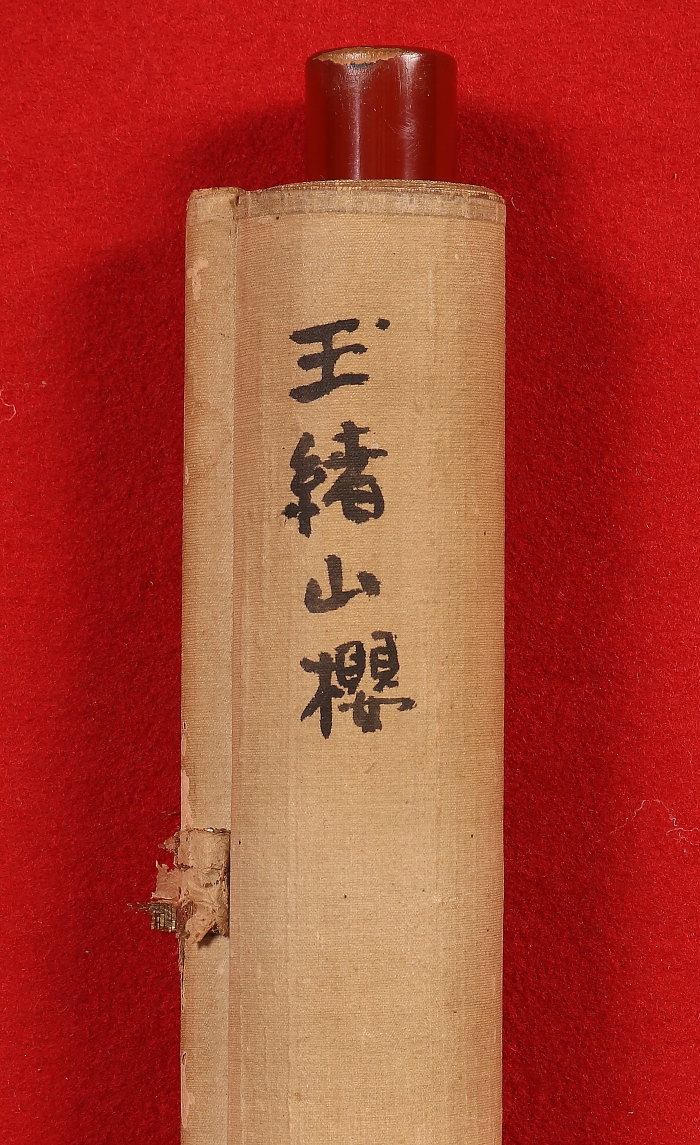 玉緒山櫻